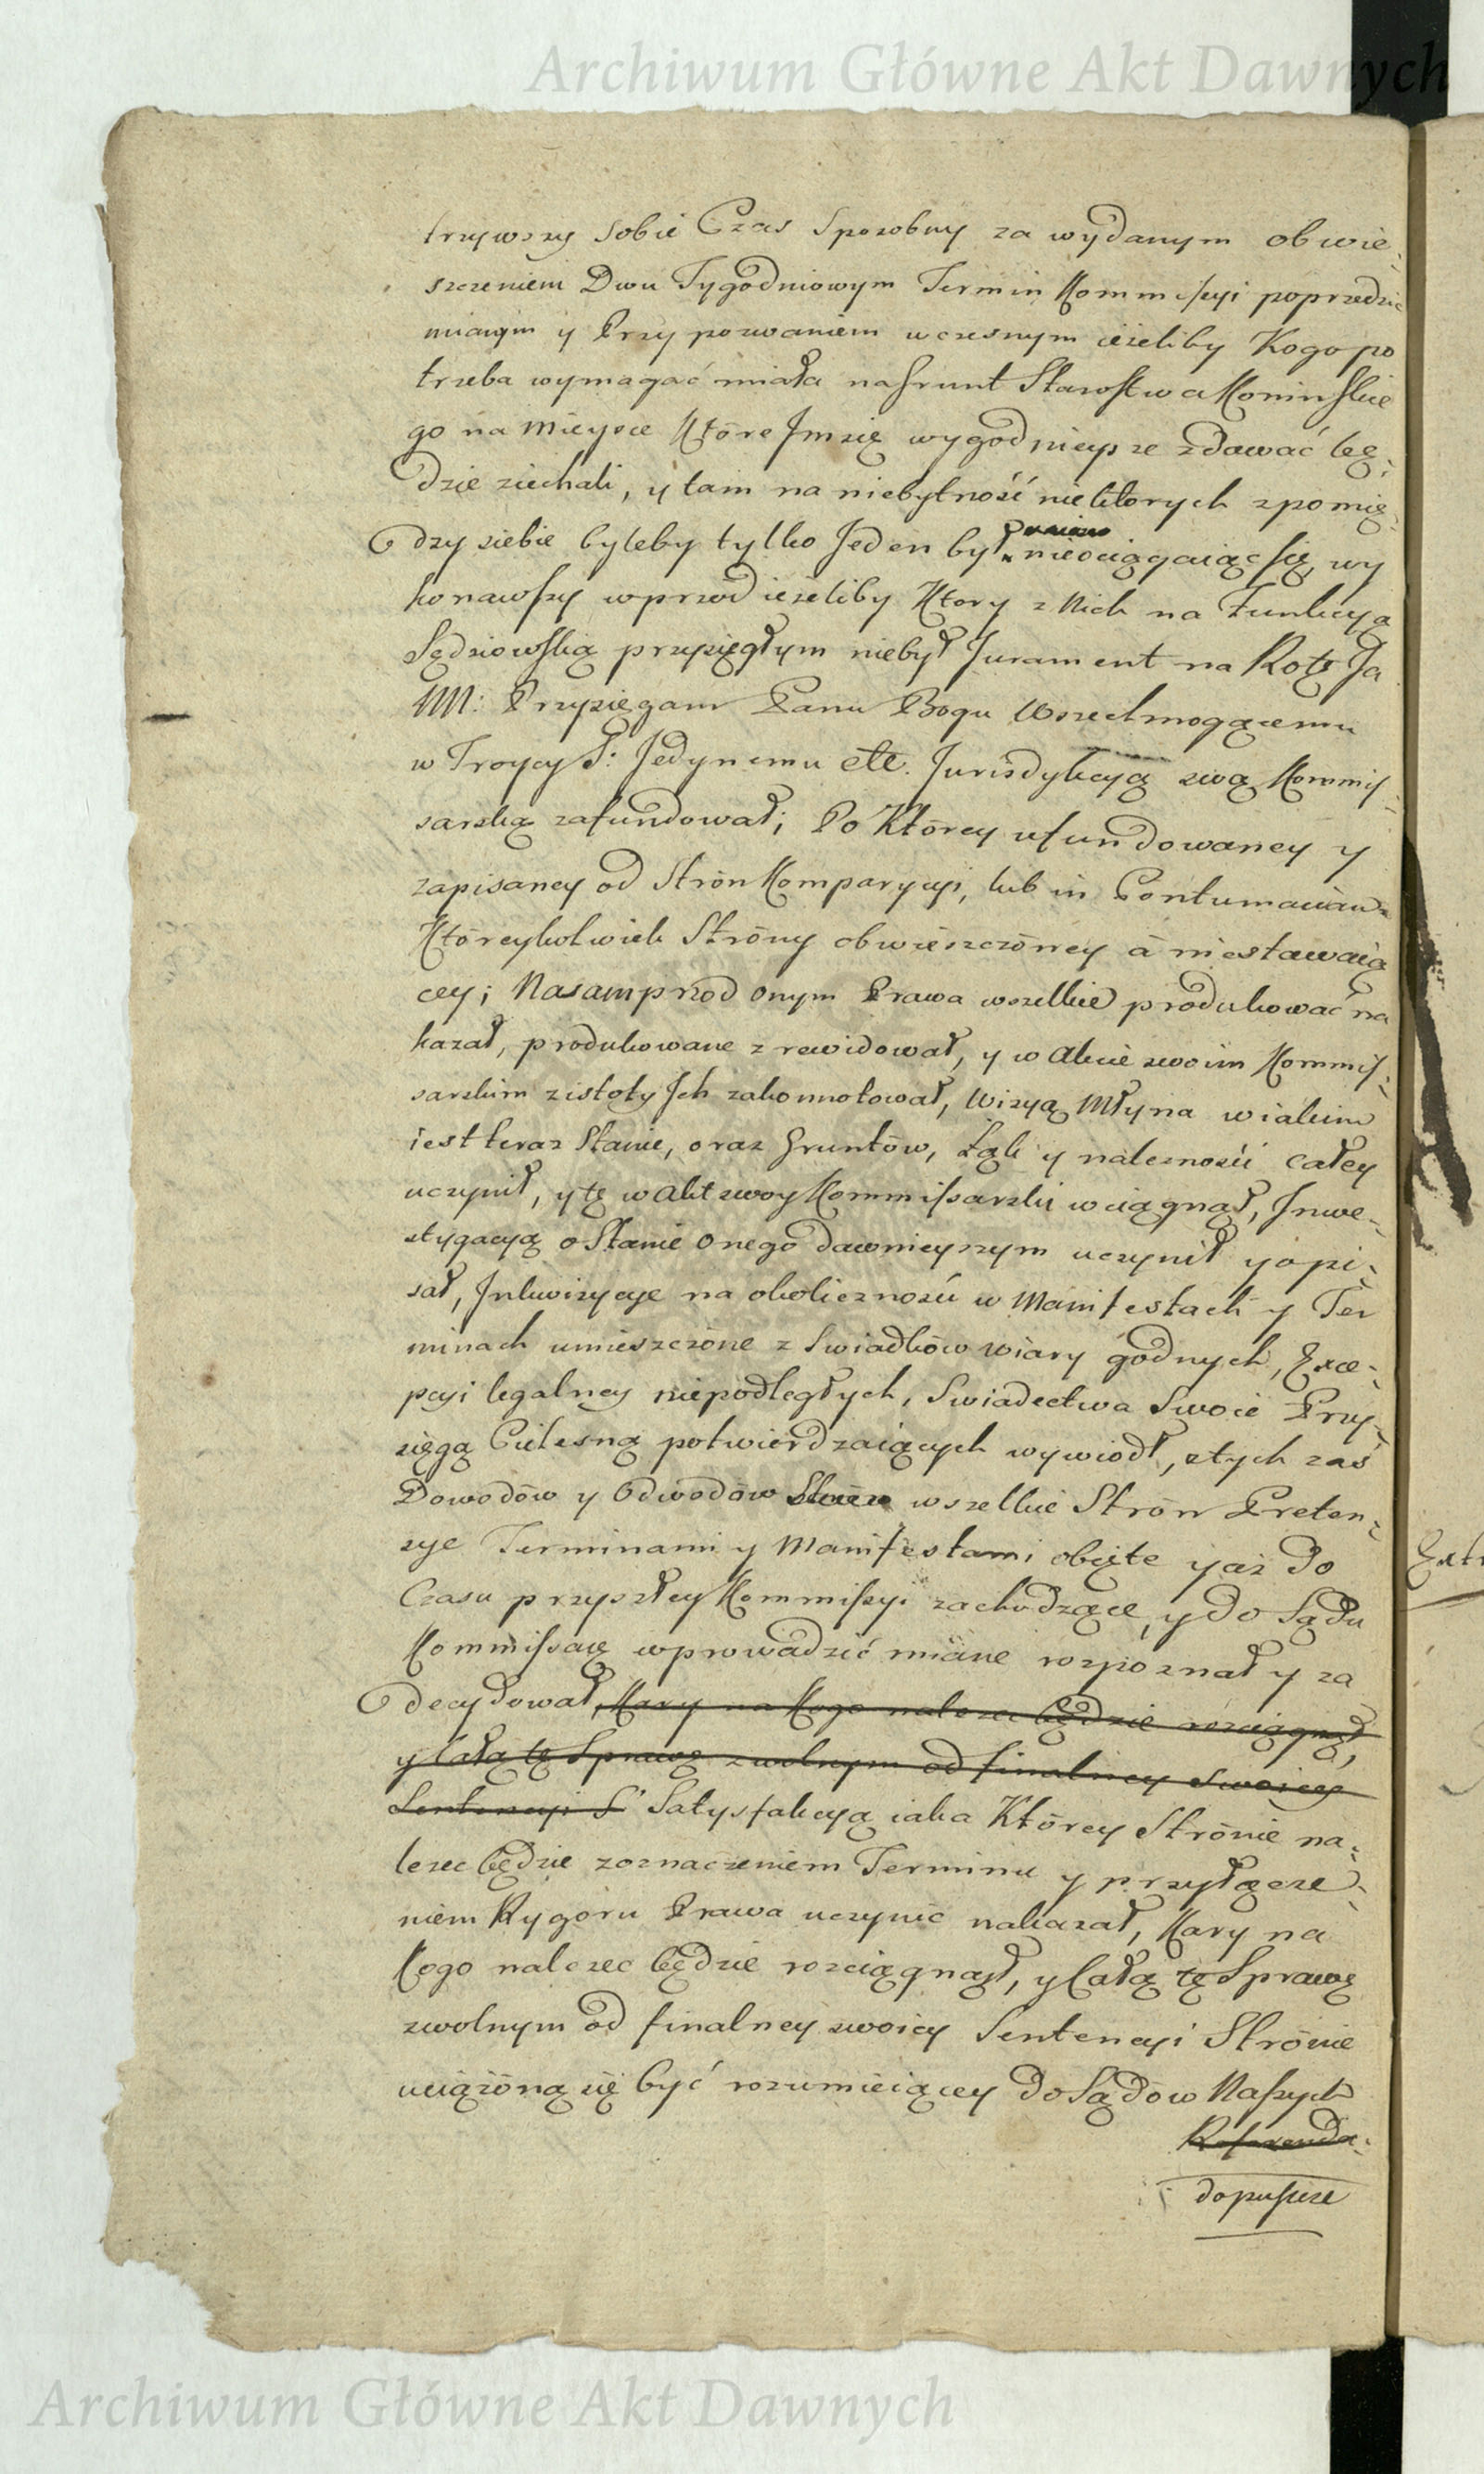 Archiwum Główne Akt Dawnych
trzywszy sobie Czas sposobny za wydanym obwie-
szczeniem Dwu Tygodniowym Termin Kommissyi poprzedzić
maiącym y Przypozwaniem wczesnym ieżeliby Kogo po
trzeba wymagać miała na Grunt Starostwa Koninskie
go na mieysce Które Im się wygodnieysze zdawać bę-
dzie ziechali, y tam na niebytność niektorych zpomię-
dzy siebie byleby tylko Jeden był nieociągaiąc się, wy
konawszy wprzód ieżeliby Ktory z Nich na Funkcyą
Sędziowską przysięgłym niebył Jurament na Rotę Ja
NN: Przysięgam Panu Bogu Wszechmogącemu
w Troycy S: Jedynemu etc. Jurisdykcyą swą Kommis-
sarską zafundował; Po Którey ufundowaney y
zapisaney od Strón Komparycyi, lub in Contumaciam
Któreykolwiek Strony obwieszczóney à niestawaią
cey; Nasamprzod onym Prawa wszelkie produkować na
kazał, produkowane zrewidował, y w Akcie swoim Kommis-
sarskim zistoty Jch zakonnotował, Wizyą Młyna w iakim
iest teraz Stanie, oraz Gruntów, Łąk y należności całey
uczynił, y tę w Akt swoy Kommissarski wciągnął, Inwe-
stygacyą o Stanie onego dawnieyszym uczynił y opi-
sał, Inkwizycye na okoliczności w Manifestach y Ter
minach umieszczóne z Swiadków wiary godnych, Exce-
pcyi legalney niepodległych, Swiadectwa Swoie Przy-
sięgą Cielesną potwierdzaiących wywiodł, z tych zaś
Dowodów y Odwodów wszelkie Strón Preten-
sye Terminami y Manifestami obięte y aż do
Czasu przyszłey Kommissyi zachodzące, y do Sądu
Kommissaię wprowadzić miane rozpoznał y za
decydował, Kary na Kogo należec będzie rozciągnął,
y Całą tę Sprawę z wolnym od finalney swoiey
Sentencyi S Satysfakcyą iaka Którey Strónie na-
lezec będzie zoznaczeniem Terminu y przyłącze-
niem Rygoru Prawa uczynic nakazał, Kary na
Kogo nalezec będzie rozciągnął, y Całą tę Sprawę
zwolnym od finalney swoiey Sentencyi Strónie
uciążóną się być rozumieiącey do Sądow Naszych
Referenda-
dopuście
Extr
Archiwum Główne Akt Dawnych